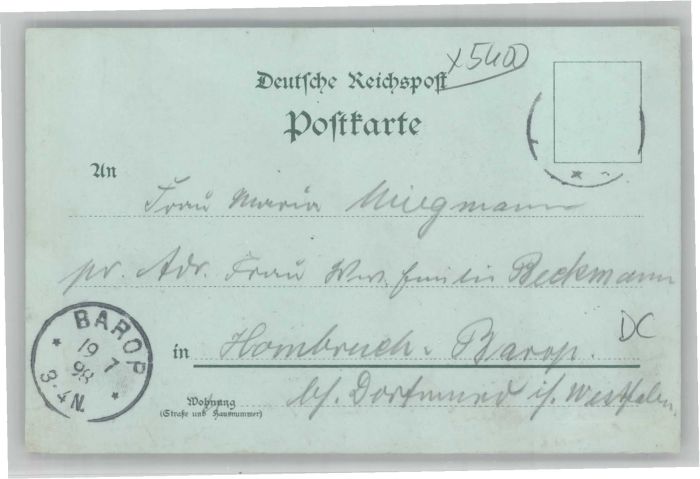 x5400
Deutsche Reichspost
Postkarte
An
Frau Maria
pr. Adr. Frau Wwe. Emilie Beckmann
DC
in Hombruch-Barop.
b/. Dortmund i/. Westfalen.
Wohnung
(Straße und Hausnummer)
BAROP
19 7
98
3-4N.